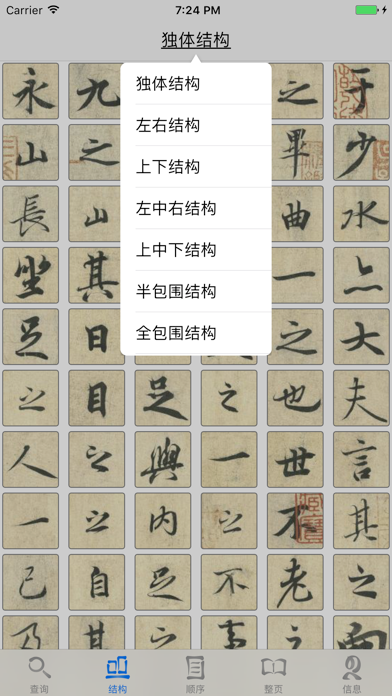 Carrier 7:24 PM
独体结构
独体结构
左右结构
上下结构
左中右结构
上中下结构
半包围结构
全包围结构
永 九 之 于
山 之 畢 少
長 山 曲 水
坐 其 一 亦
足 日 之 大
之 目 足 之 也 夫
人 之 與 一 世 言
一 之 内 之 不 其
已 自 足 不 老 之
乃 其 之 事 之 面
查询 结构 顺序 整页 信息